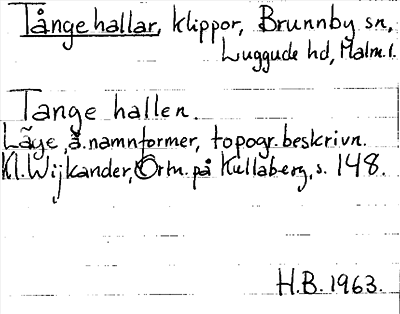 Tångehallar, klippor, Brunnby sn,
Luggude hd, Malm.l.
Tange hallen.
Läge, ä. namnformer, topogr. beskrivn.
Kl. Wijkander, Ortn. på Kullaberg, s. 148.
H.B. 1963.